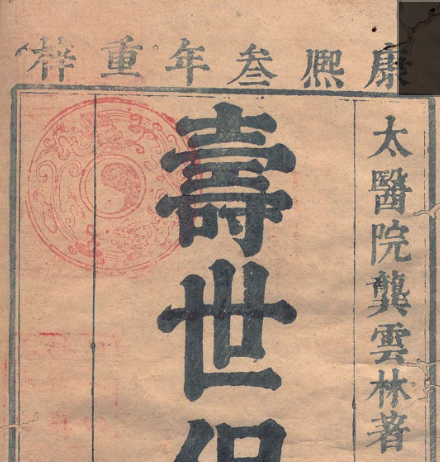 康熙叁年重梓
太醫院龔雲林著
壽世保